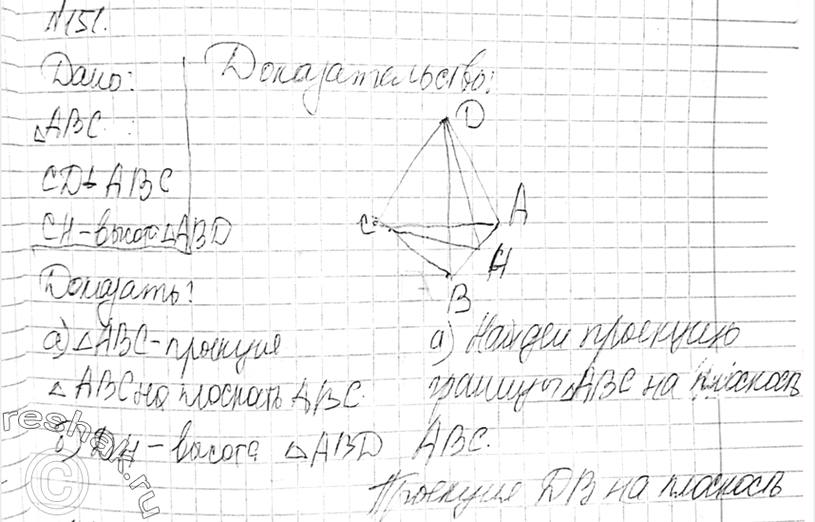 №151.
Дано:
Доказательство:
△ABC
CD⊥ABC
CH-высота △ABD
D
C
A
H
B
Доказать:
а) △ABC-проекция
△ABC на плоскость ABC
б) DH - высота △ABD
а) Найдем проекцию
границы △ABC на плоскость
ABC.
Проекция DB на плоскость
reshak.ru
©